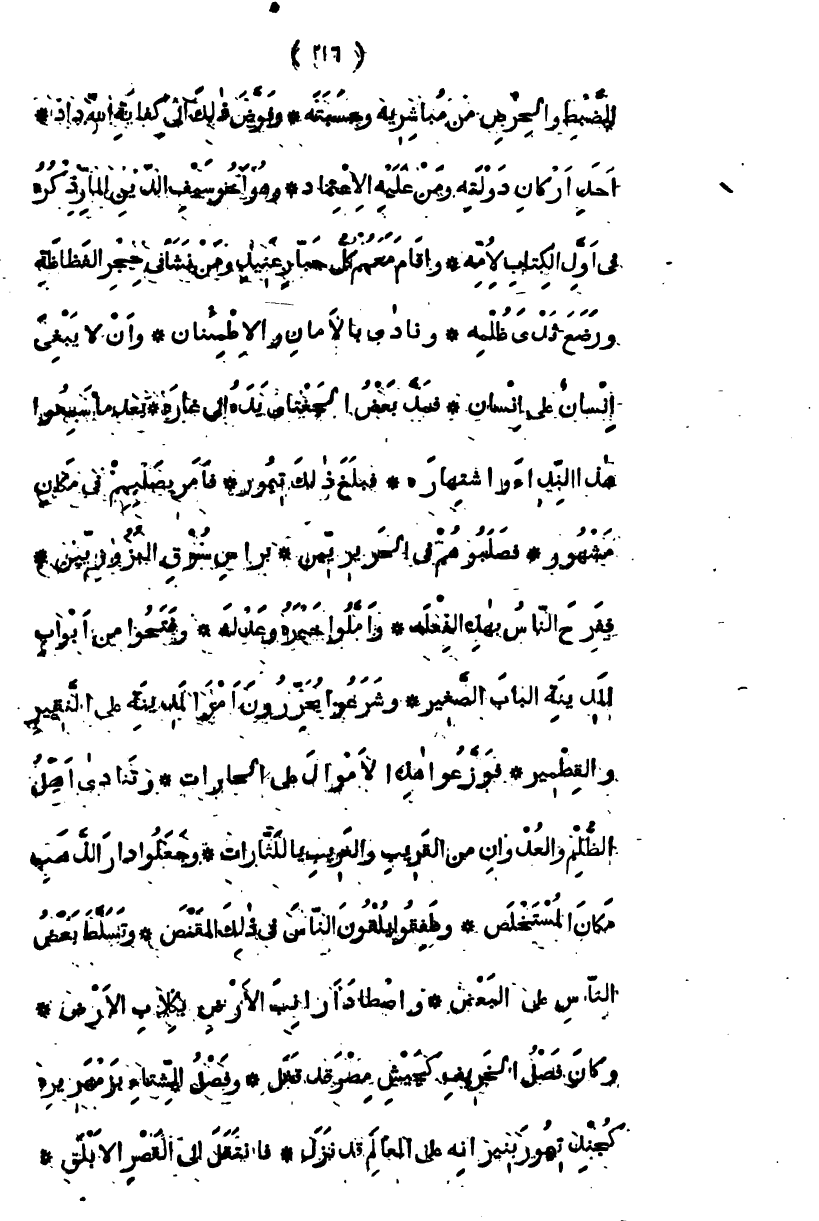 ( ٢١٦ )
الضَّبْطِ والحِرْصِ مَنْ مُباشِرِيهِ وحَسَبَتَه * وفَوَّضَ ذٰلِكَ الى كِفايَةِ اللّٰه داد *
اَحَدِ اَرْكانِ دَوْلَتِهِ ومَنْ عَلَيْهِ الاِعْتِماد * وهُوَ اَخُو سَيْفِ الدّينِ المارِّ ذِكْرُهُ
فى اَوَّلِ الكِتابِ لاُمِّه * واقامَ مَعَهُمْ كُلَّ جَبّارٍ عَنِيدٍ ومَنْ نَشَأَ فى حِجْرِ الفَظاظَةِ
ورَضَعَ ثَدْىَ ظُلْمِه * ونادى بالاَمانِ والاِطْمِئنان * واَنْ لا يَبْغِىَ
اِنْسانٌ على اِنْسان * فمَدَّ بَعْضُ الجَغْتاى يَدَهُ الى غارَة * بَعْدَ ما سَمِعُوا
هٰذا النِّداءَ واشتِهارَه * فبَلَغَ ذٰلكَ تِيمُور * فاَمَرَ بصَلْبِهِمْ فى مَكانٍ
مَشْهُور * فصَلَبُوهُمْ فى الحَريريّين * براسِ سُوْقِ البُزُورِيّين *
ففَرِحَ النّاسُ بهٰذِهِ الفِعْلَه * واَمَّلُوا خَيْرَهُ وعَدْلَه * وفَتَحُوا مِن اَبْوابِ
المَدينَةِ البابَ الصَّغير * وشَرَعُوا يُحَرِّرُونَ اَمْرَ المَدينَةِ على النَّقيرِ
والقِطْمير * فوَزَّعُوا هٰذِهِ الاَمْوالَ على الحارات * وتَنادىٰ اَهْلُ
الظُّلْمِ والعُدْوانِ من القَريبِ والغَريبِ يا لَلثّارات * وجَعَلُوا دارَ الذَّهَبِ
مَكانَ المُسْتَخْلَص * وطَفِقُوا يُلْقُونَ النّاسَ فى ذٰلِكَ المَقْنَص * وتَسَلَّطَ بَعْضُ
النّاسِ على البَعْض * واصْطادَ اَرانِبَ الاَرْضِ بكِلابِ الاَرْض *
وكانَ فَصْلُ الخَريفِ كجَيْشِ مِصْرَ قد قَفَل * وفَصْلُ الشِّتاءِ بزَمْهَريرِهِ
كجُنْدِ تِيمُورَ بنِيرانِه على العالَمِ قد نَزَلَ * فانتَقَلَ الى القَصْرِ الاَبْلَق *